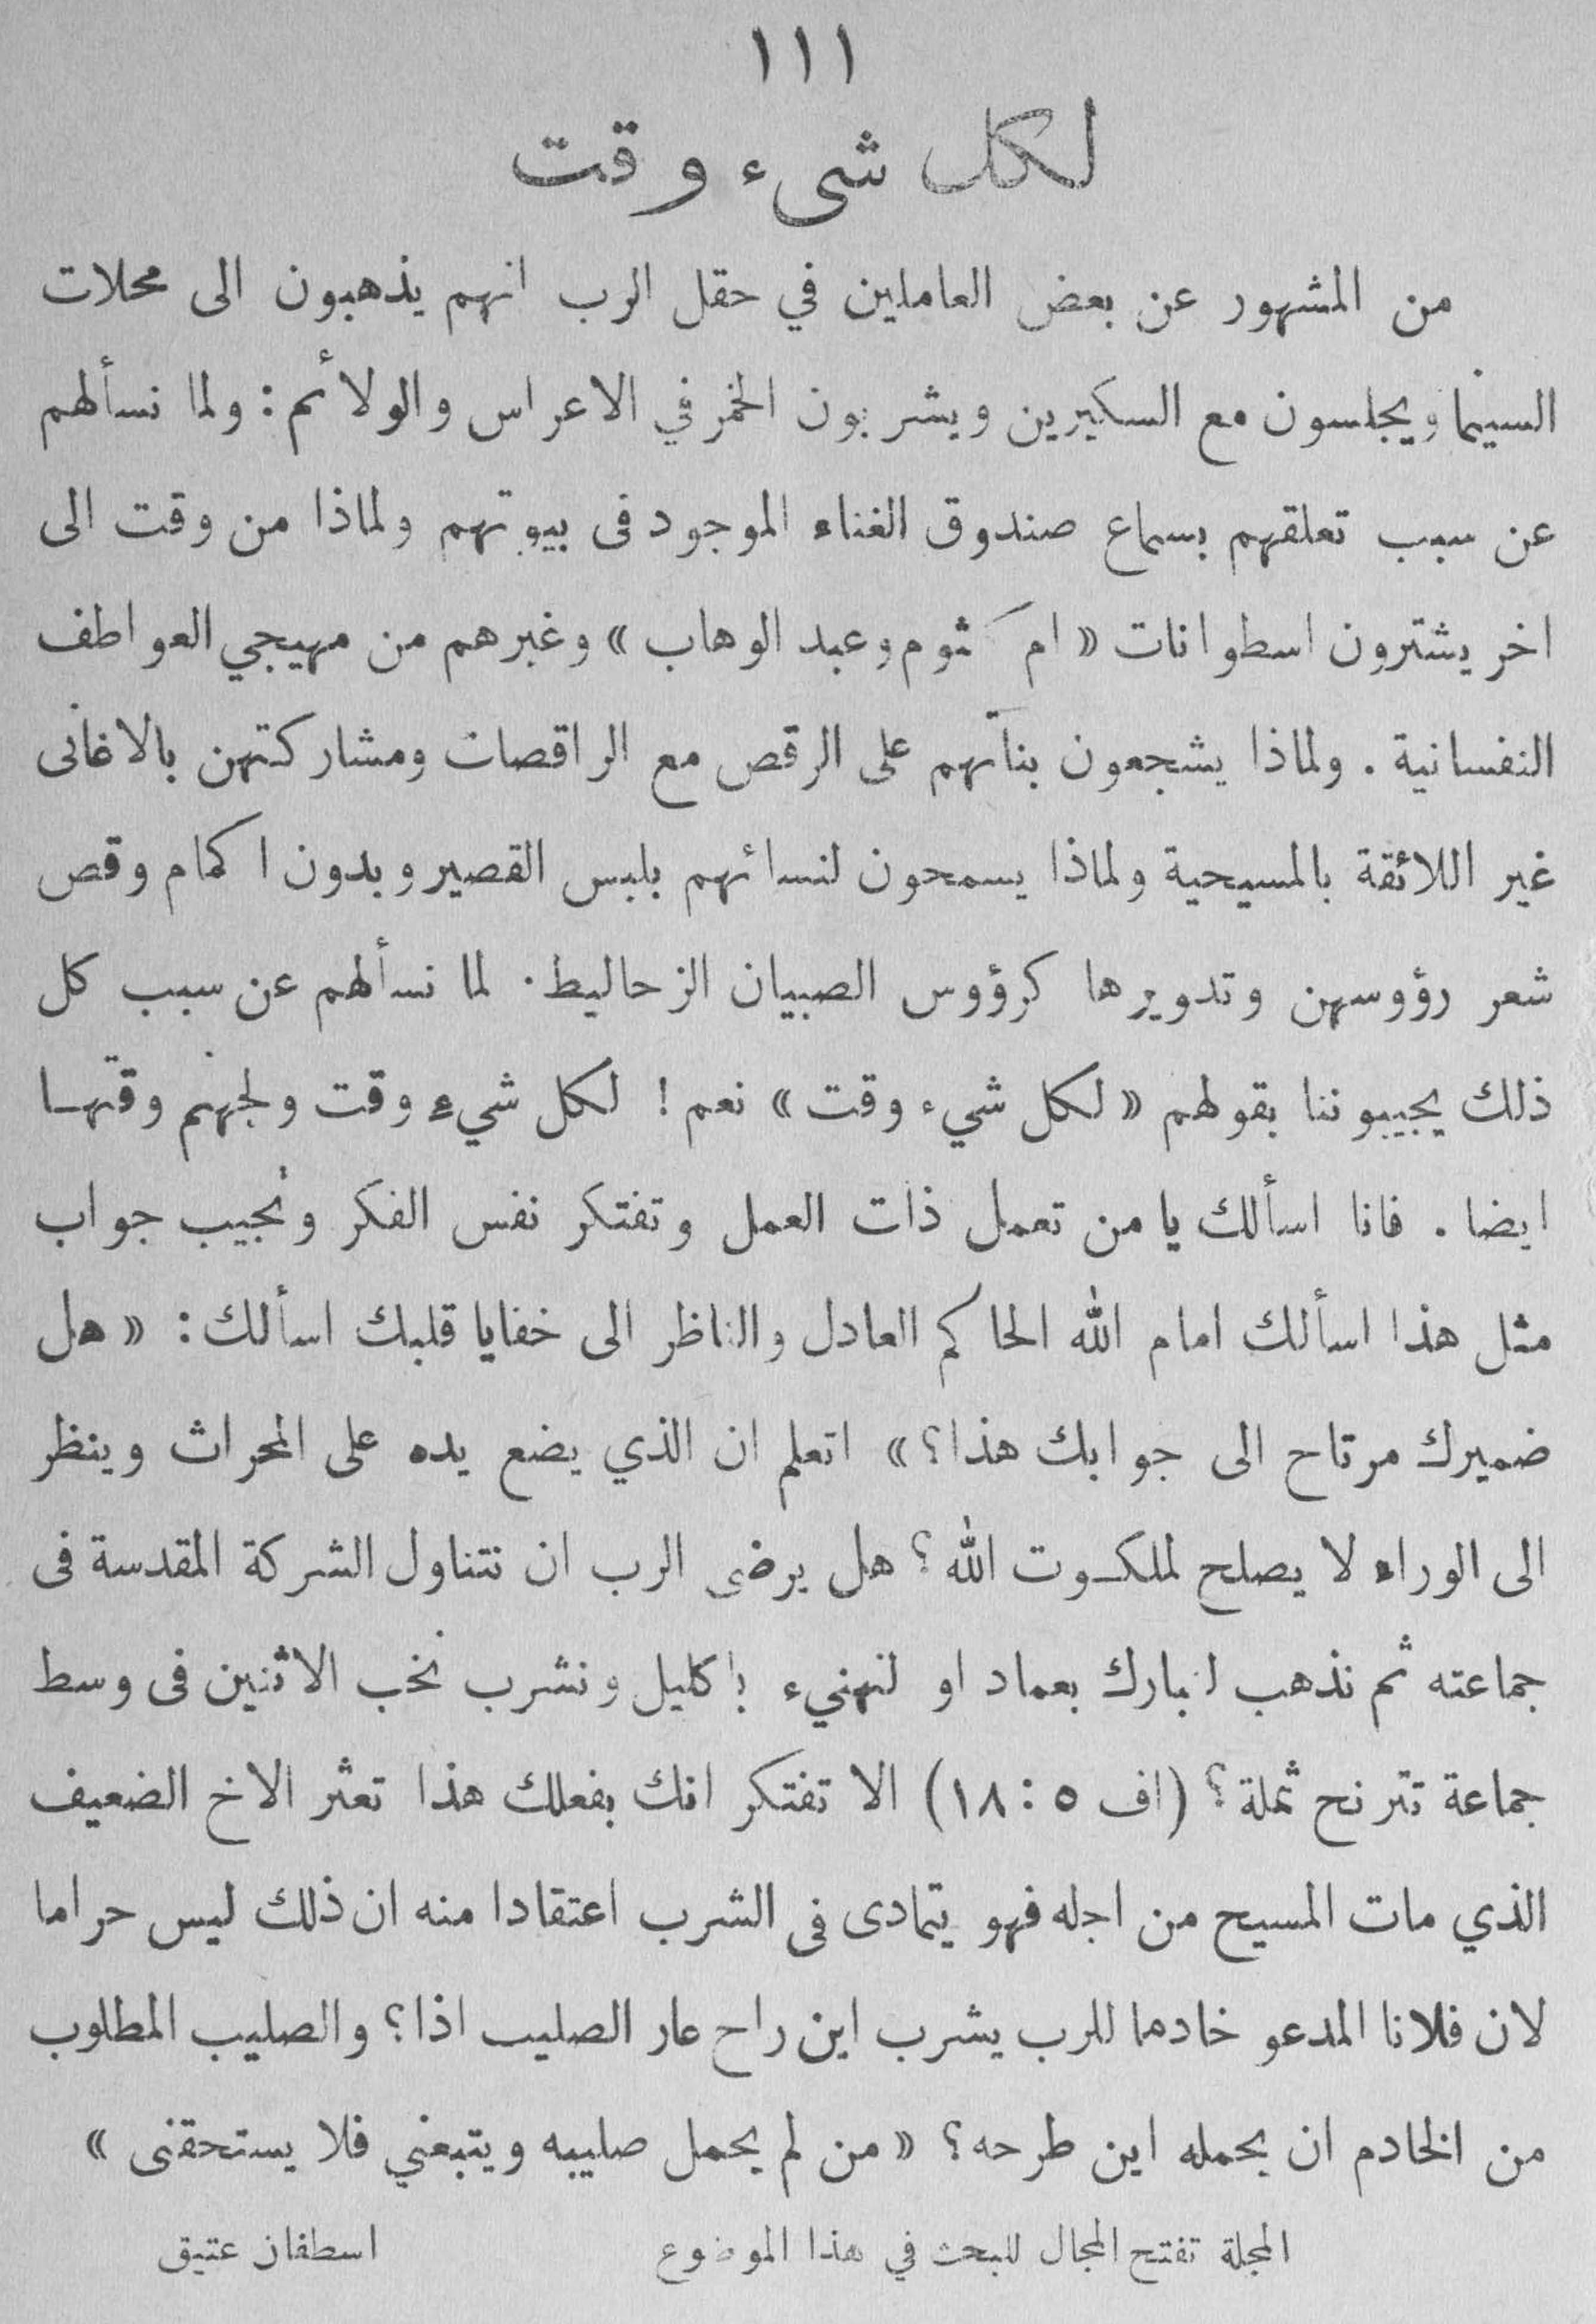 ١١١
لكل شىء وقت
من المشهور عن بعض العاملين في حقل الرب انهم يذهبون الى محلات
السينما ويجلسون مع السكيرين ويشربون الخمر في الاعراس والولائم: ولما نسألهم
عن سبب تعلقهم بسماع صندوق الغناء الموجود فى بيوتهم ولماذا من وقت الى
اخر يشترون اسطوانات « ام كلثوم وعبد الوهاب » وغيرهم من مهيجي العواطف
النفسانية . ولماذا يشجعون بناتهم على الرقص مع الراقصات ومشاركتهن بالاغانى
غير اللائقة بالمسيحية ولماذا يسمحون لنسائهم بلبس القصير وبدون اكمام وقص
شعر رؤوسهن وتدويرها كرؤوس الصبيان الزحاليط . لما نسألهم عن سبب كل
ذلك يجيبوننا بقولهم « لكل شيء وقت » نعم ! لكل شيء وقت ولجهنم وقتها
ايضا . فانا اسألك يا من تعمل ذات العمل وتفتكر نفس الفكر وتجيب جواب
مثل هذا اسألك امام الله الحاكم العادل والناظر الى خفايا قلبك اسألك : « هل
ضميرك مرتاح الى جوابك هذا؟ » اتعلم ان الذي يضع يده على المحراث وينظر
الى الوراء لا يصلح لملكوت الله؟ هل يرضى الرب ان نتناول الشركة المقدسة فى
جماعته ثم نذهب لنبارك بعماد او لنهنيء باكليل ونشرب نخب الاثنين فى وسط
جماعة تترنح ثملة؟ (اف ٥ : ١٨) الا تفتكر انك بفعلك هذا تعثر الاخ الضعيف
الذي مات المسيح من اجله فهو يتمادى فى الشرب اعتقادا منه ان ذلك ليس حراما
لان فلانا المدعو خادما للرب يشرب اين راح عار الصليب اذا؟ والصليب المطلوب
من الخادم ان يحمله اين طرحه؟ « من لم يحمل صليبه ويتبعني فلا يستحقنى »
المجلة تفتح المجال للبحث في هذا الموضوع اسطفان عتيق